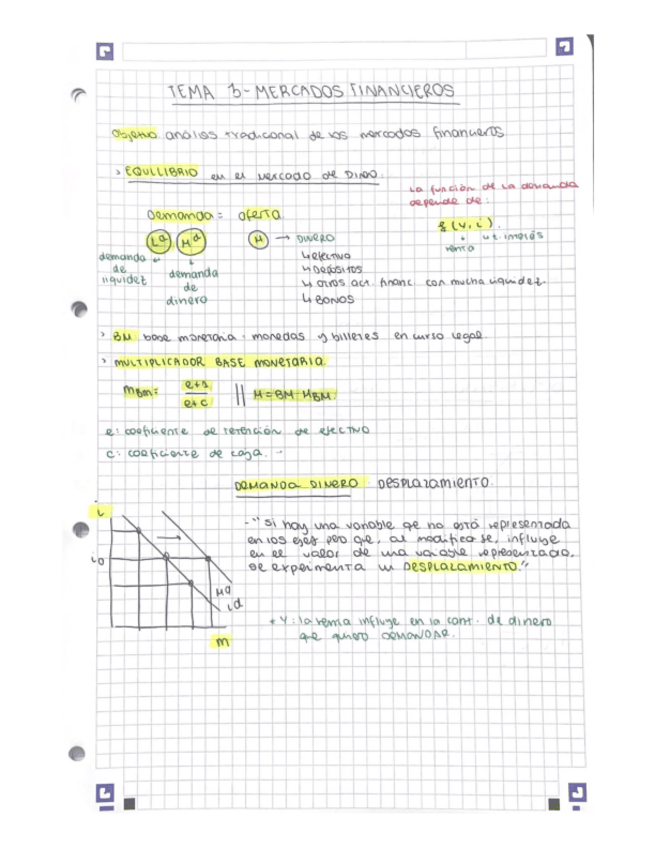 TEMA 3 - MERCADOS FINANCIEROS
Objetivo: análisis tradicional de los mercados financieros
> EQUILIBRIO en el mercado de DINERO.
La función de la demanda
depende de:
Demanda = oferta
f (Y, i).
renta
Ld Md M → DINERO
demanda de liquidez
demanda de dinero
↳ efectivo
↳ Depósitos
↳ otros act. financ. con mucha liquidez.
↳ BONOS
> BM base monetaria: monedas y billetes en curso legal
> MULTIPLICADOR BASE MONETARIA.
mBM = e+1 / e+c || M = BM · MBM.
e: coeficiente de retención de efectivo
c: coeficiente de caja.
DEMANDA DINERO: DESPLAZAMIENTO.
i
- "Si hay una variable qe no está representada
en los ejes pero qe, al modificarse, influye
en el valor de una variable representada,
se experimenta un DESPLAZAMIENTO."
i0
Md
Ld
m
* Y: la renta influye en la cant. de dinero
qe quiero DEMANDAR.